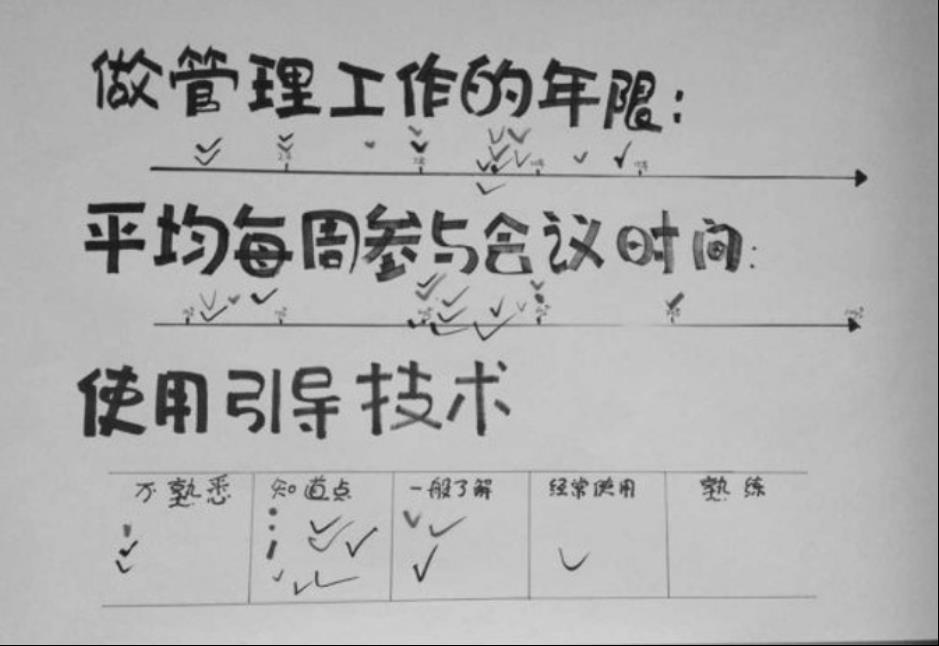 做管理工作的年限:
平均每周参与会议时间:
使用引导技术
不熟悉 知道点 一般了解 经常使用 熟练